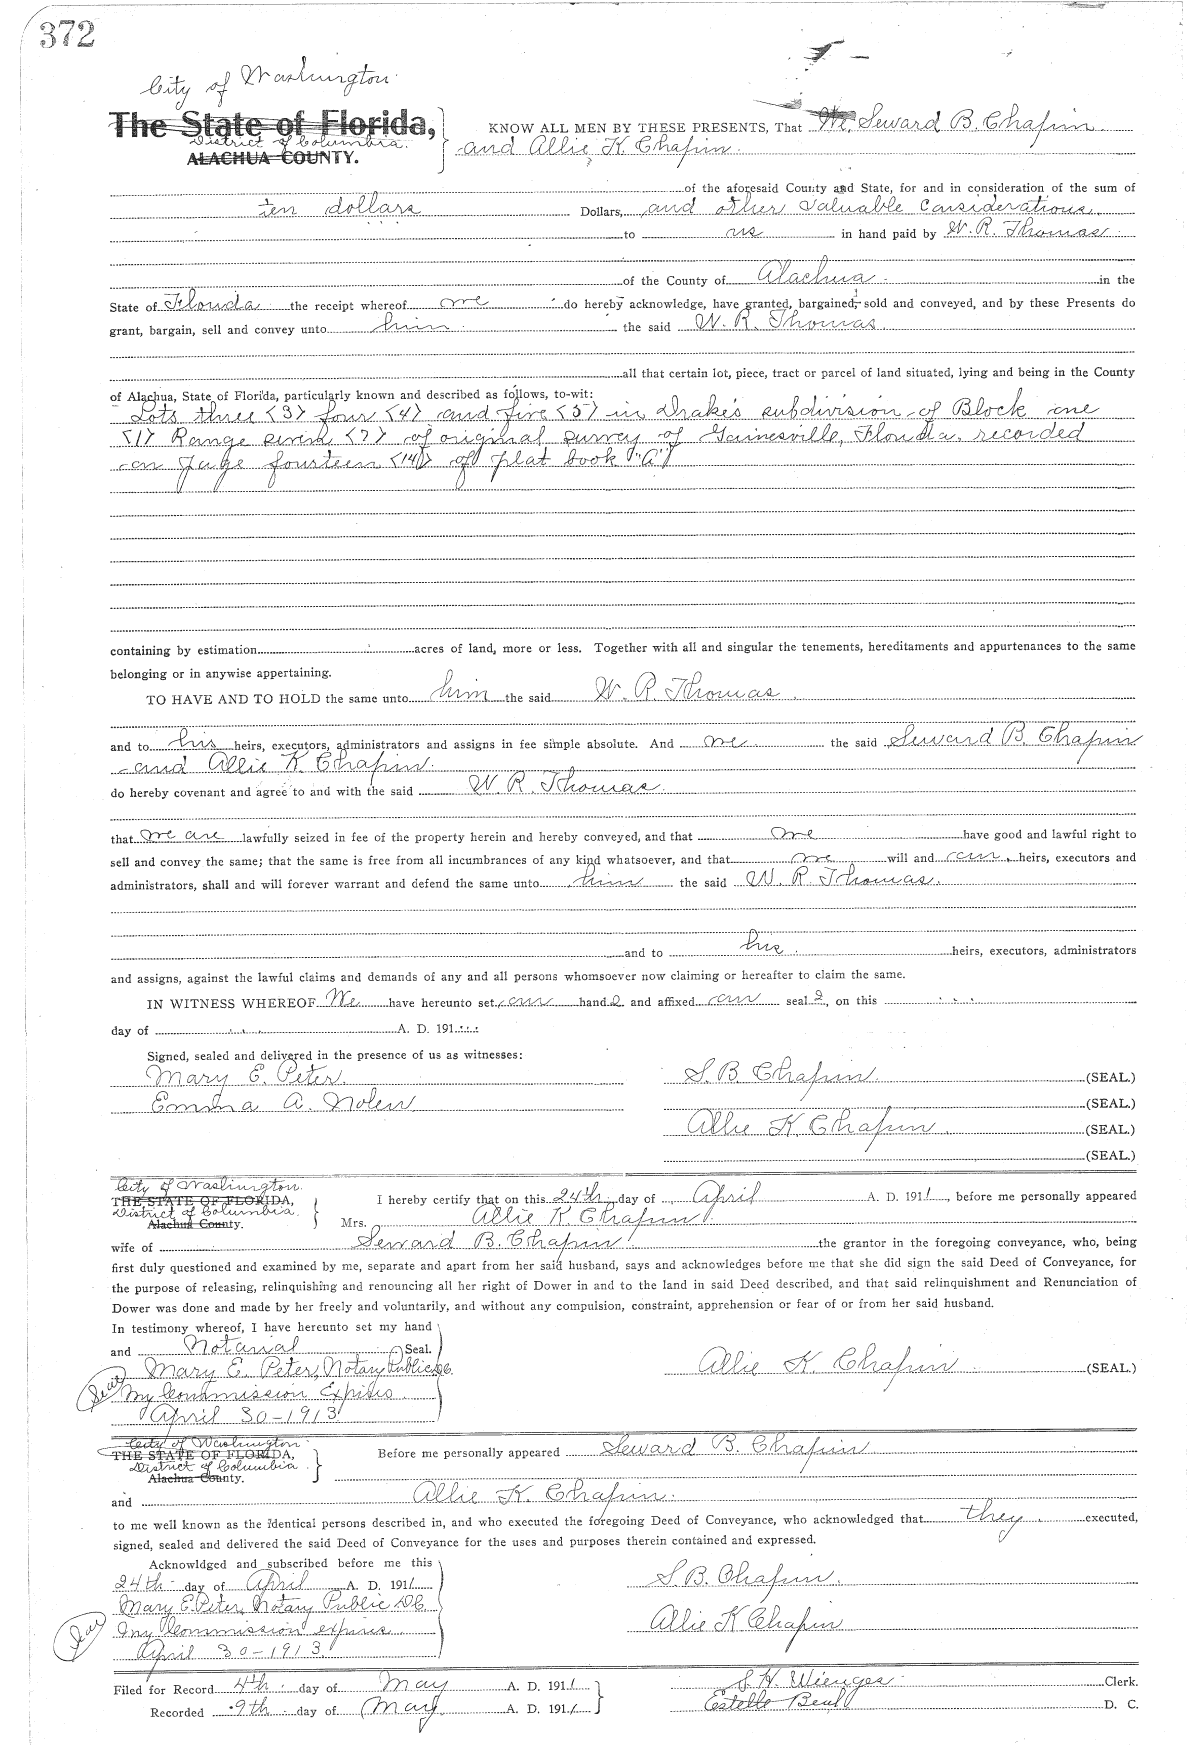 372
City of Washington
The State of Florida,
District of Columbia
ALACHUA COUNTY.
KNOW ALL MEN BY THESE PRESENTS, That We, Seward B. Chapin
and Allie K. Chapin
of the aforesaid County and State, for and in consideration of the sum of
ten dollars Dollars, and other valuable considerations
to us in hand paid by W. R. Thomas
of the County of Alachua in the
State of Florida the receipt whereof we do hereby acknowledge, have granted, bargained, sold and conveyed, and by these Presents do
grant, bargain, sell and convey unto him the said W. R. Thomas
all that certain lot, piece, tract or parcel of land situated, lying and being in the County
of Alachua, State of Florida, particularly known and described as follows, to-wit:
Lots three <3> four <4> and five <5> in Drake's subdivision of Block one
<1> Range seven <7> of original survey of Gainesville, Florida, recorded
on page fourteen <14> of plat book "A"
containing by estimation acres of land, more or less. Together with all and singular the tenements, hereditaments and appurtenances to the same
belonging or in anywise appertaining.
TO HAVE AND TO HOLD the same unto him the said W. R. Thomas
and to his heirs, executors, administrators and assigns in fee simple absolute. And we the said Seward B. Chapin
and Allie K. Chapin
do hereby covenant and agree to and with the said W. R. Thomas
that we are lawfully seized in fee of the property herein and hereby conveyed, and that we have good and lawful right to
sell and convey the same; that the same is free from all incumbrances of any kind whatsoever, and that we will and our heirs, executors and
administrators, shall and will forever warrant and defend the same unto him the said W. R. Thomas.
and to his heirs, executors, administrators
and assigns, against the lawful claims and demands of any and all persons whomsoever now claiming or hereafter to claim the same.
IN WITNESS WHEREOF We have hereunto set our hands and affixed our seals, on this
day of A. D. 191
Signed, sealed and delivered in the presence of us as witnesses:
Mary E. Peter. S. B. Chapin (SEAL.)
Emma A. Nolen (SEAL.)
Allie K. Chapin (SEAL.)
(SEAL.)
City of Washington
THE STATE OF FLORIDA,
District of Columbia
Alachua County.
I hereby certify that on this 24th day of April A. D. 1911, before me personally appeared
Mrs. Allie K. Chapin
wife of Seward B. Chapin the grantor in the foregoing conveyance, who, being
first duly questioned and examined by me, separate and apart from her said husband, says and acknowledges before me that she did sign the said Deed of Conveyance, for
the purpose of releasing, relinquishing and renouncing all her right of Dower in and to the land in said Deed described, and that said relinquishment and Renunciation of
Dower was done and made by her freely and voluntarily, and without any compulsion, constraint, apprehension or fear of or from her said husband.
In testimony whereof, I have hereunto set my hand
and Notarial Seal.
Mary E. Peter, Notary Public DC. Allie K. Chapin (SEAL.)
Seal My Commission Expires
April 30-1913
City of Washington
THE STATE OF FLORIDA,
District of Columbia
Alachua County.
Before me personally appeared Seward B. Chapin
and Allie K. Chapin
to me well known as the identical persons described in, and who executed the foregoing Deed of Conveyance, who acknowledged that they executed,
signed, sealed and delivered the said Deed of Conveyance for the uses and purposes therein contained and expressed.
Acknowldged and subscribed before me this
24th day of April A. D. 1911 S. B. Chapin
Mary E. Peter, Notary Public DC
Seal My Commission expires Allie K Chapin
April 30-1913.
Filed for Record 4th day of May A. D. 1911 S. H. Wienges Clerk.
Recorded 9th day of May A. D. 1911 Estelle D. C.